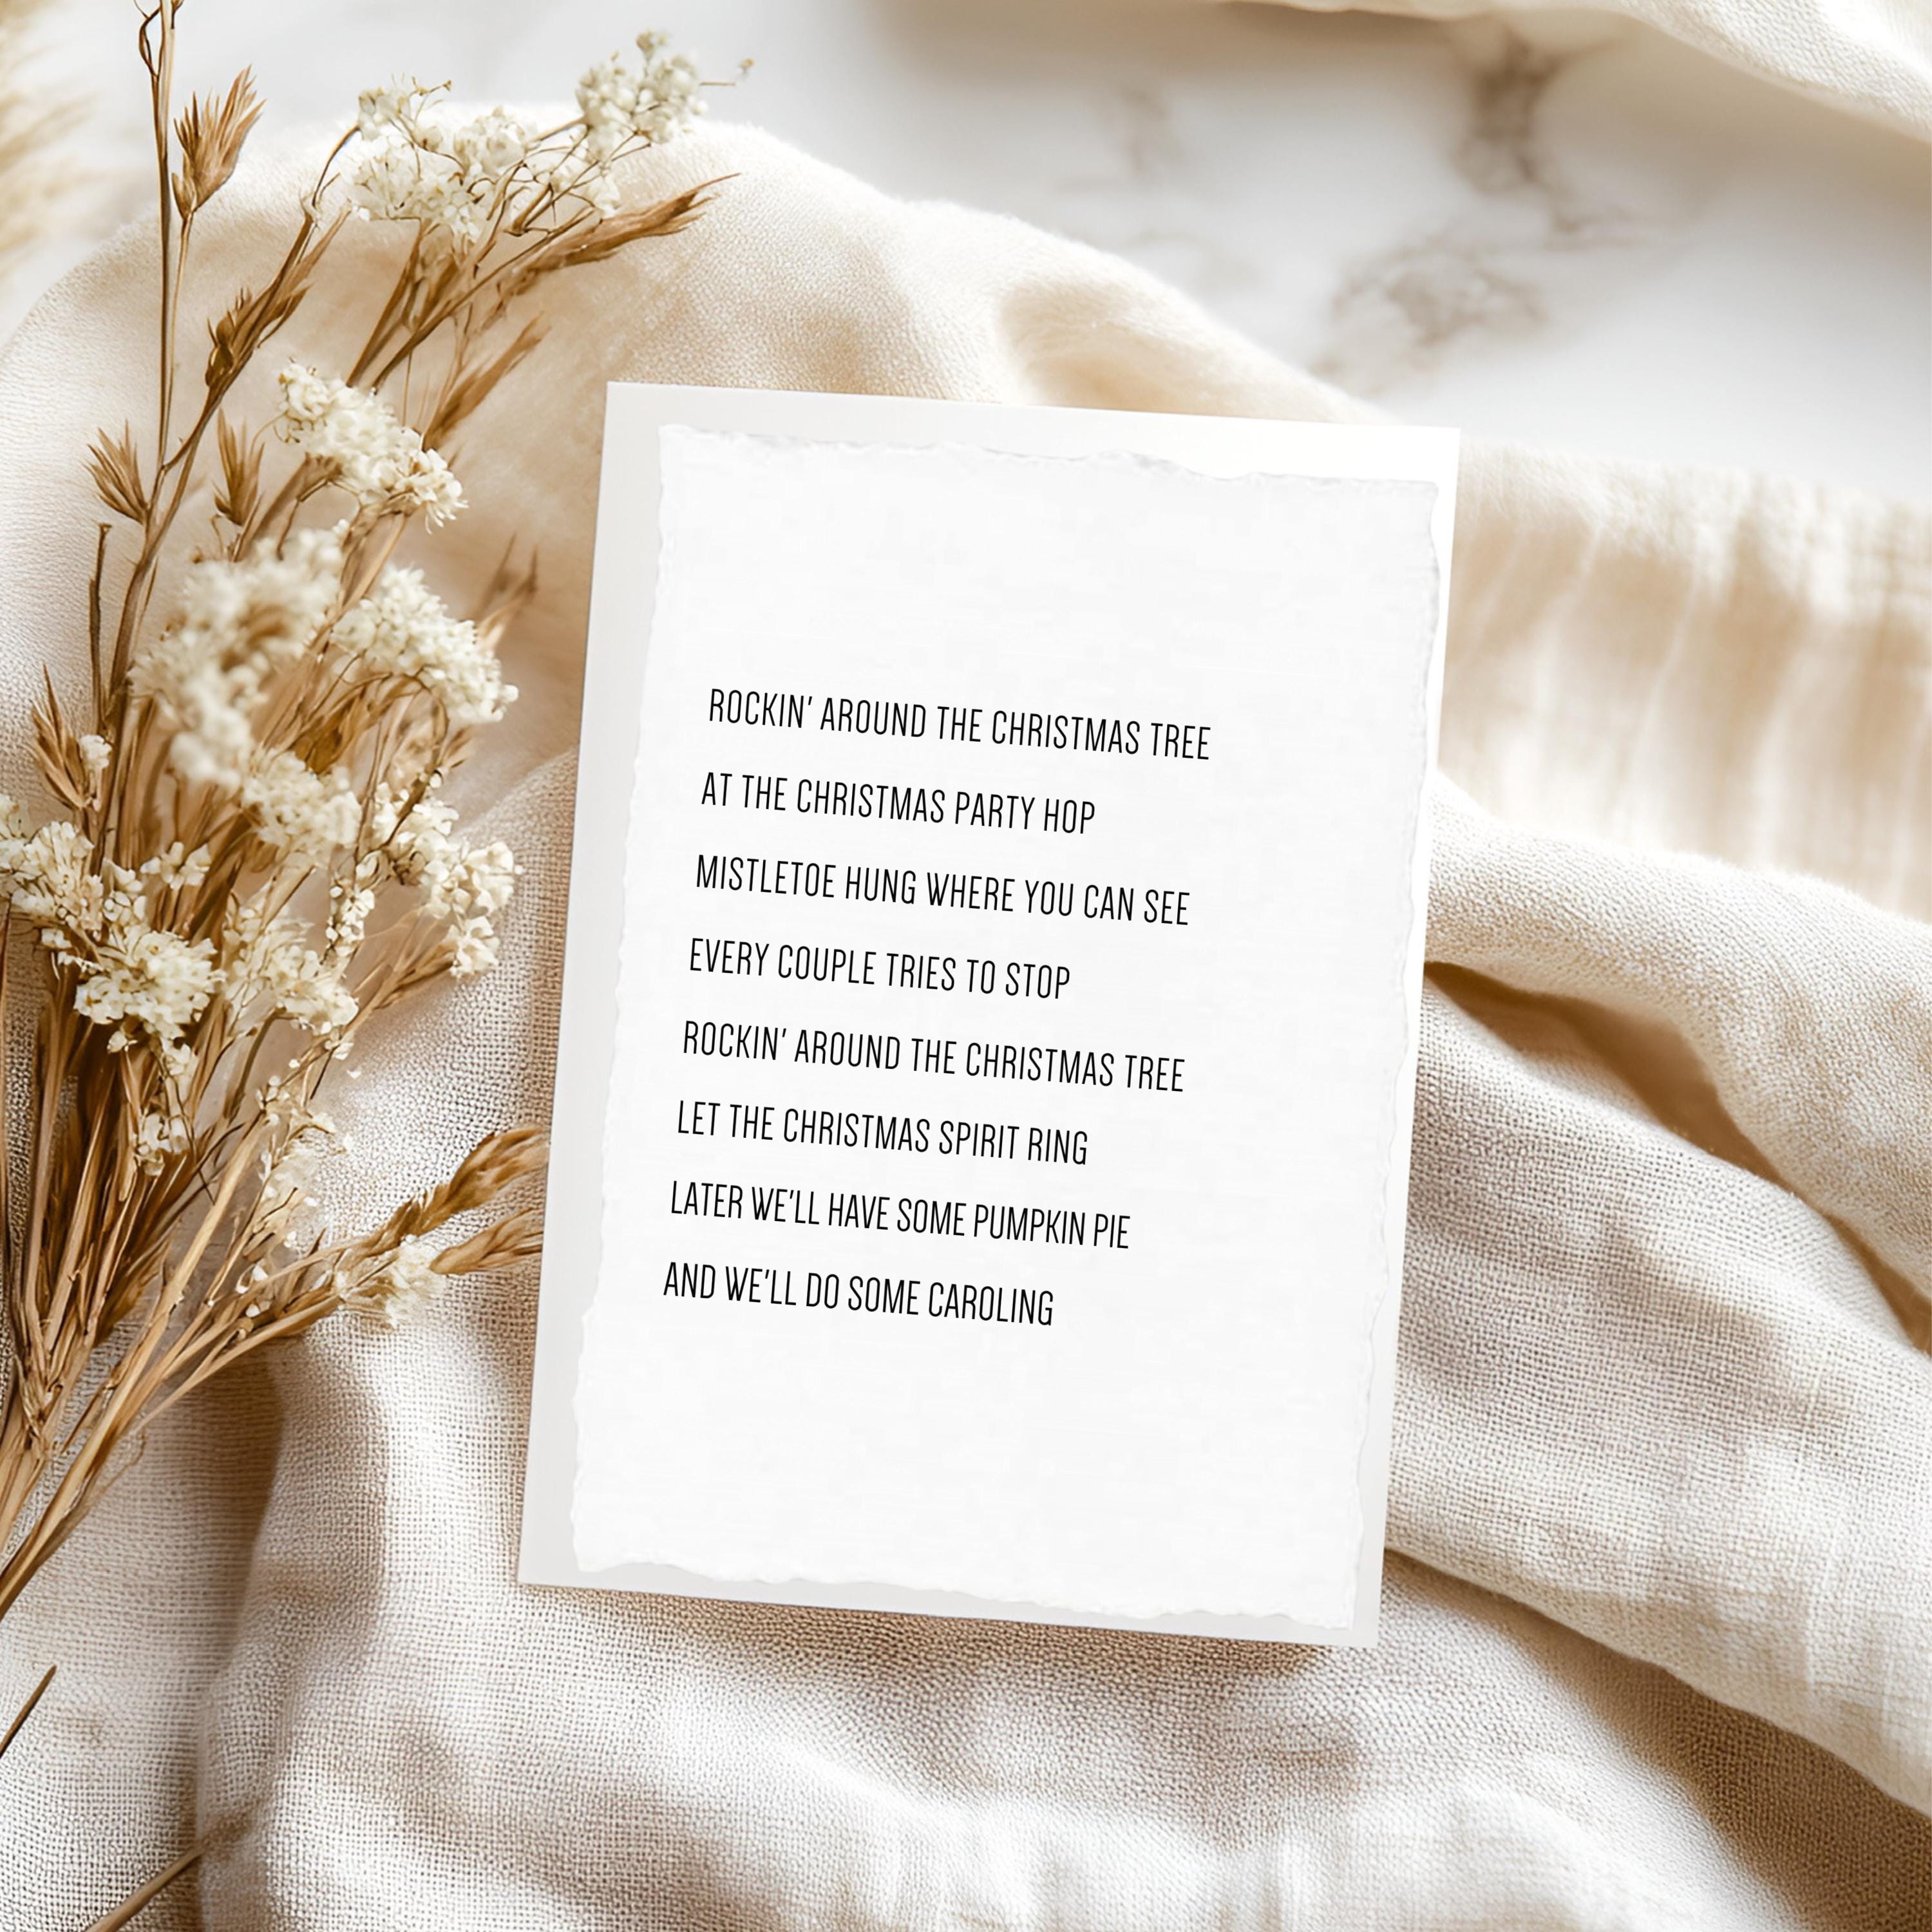 ROCKIN' AROUND THE CHRISTMAS TREE
AT THE CHRISTMAS PARTY HOP
MISTLETOE HUNG WHERE YOU CAN SEE
EVERY COUPLE TRIES TO STOP
ROCKIN' AROUND THE CHRISTMAS TREE
LET THE CHRISTMAS SPIRIT RING
LATER WE'LL HAVE SOME PUMPKIN PIE
AND WE'LL DO SOME CAROLING